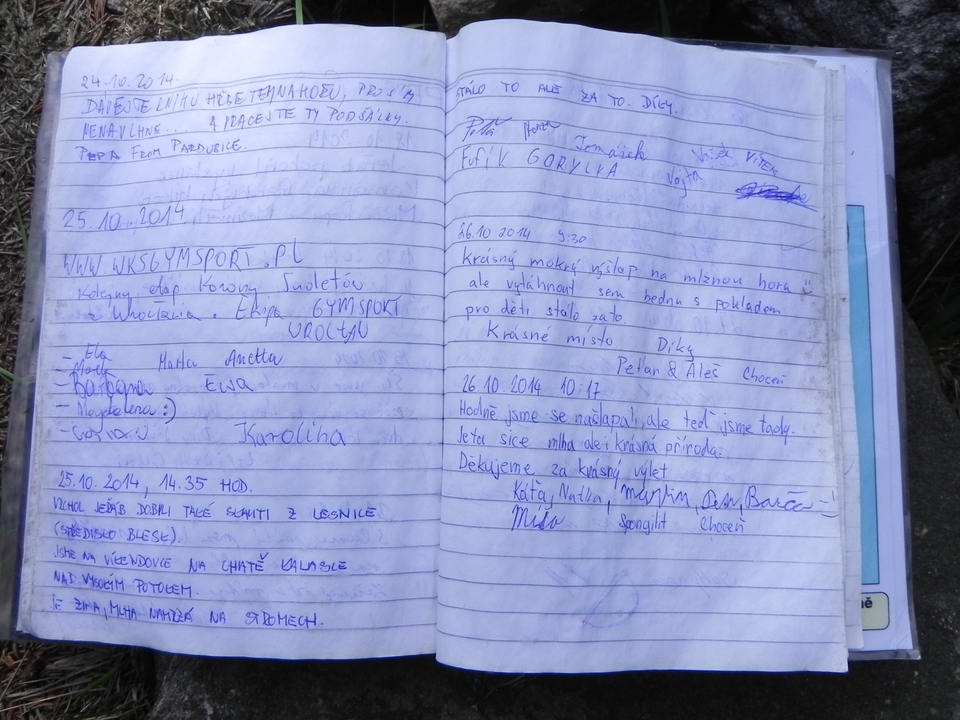 24.10.2014.
DÁVEJTE KNIHU HÓŘE TEJ NAHOŘU, PROSÍM
NENAVLHNE... A PRACEJTE TY PODŠÁLKY.
PEPA FROM PARDUBICE.
25.10.2014
WWW.WKSGYMSPORT.PL
Kolejny etap Korony Sudetów
z Wrocławia. Ekipa GYMSPORT
WROCŁAW
- Ela
- Marta Anetta
- Barbara Ewa
- Magdalena :)
Karolina
25.10.2014, 14.35 HOD.
VRCHOL JEŘÁB DOBILI TAKÉ SKAUTI Z LESNICE
(STŘEDISKO BLESK).
JSME NA VÍKENDOVCE NA CHATĚ
NAD VYSOKÝM POTOKEM.
JE ZIMA, MLHA NAMRZÁ NA STROMECH.
STÁLO TO ALE ZA TO. DÍKY.
Tomášek VÍTEK
Fufík GORYLKA Vojta
26.10 2014 9:30
Krásný mokrý výšlap na mlžnou horu
ale vytáhnout sem bednu s pokladem
pro děti stálo zato
Krásné místo Díky
Petan & Aleš Choceň
26.10.2014 10:17
Hodně jsme se našlapali, ale teď jsme tady.
Jeta sice mlha ale i krásná příroda.
Děkujeme za krásný výlet
Káťa, Naťka, Martin, Barča
Míša Spongilit Choceň